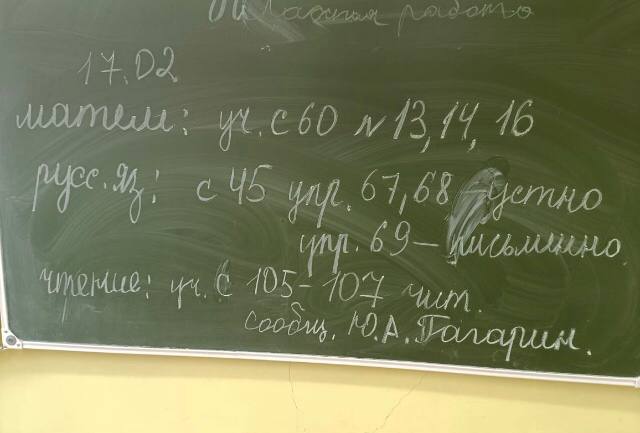 работа
17.02
матем: уч. с 60 № 13, 14, 16
русс. яз: с 45 упр. 67, 68 - устно
упр. 69 - письминно
чтение: уч. с 105-107 чит.
сообщ. Ю.А. Гагарин.